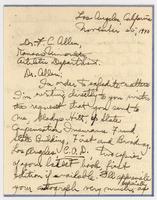 Los Angeles, California
November 25, 19
Dr. F. C. Allen,
Kansas University
Athletic Department.
Dr. Allen:
In order to expedite matters
I'm writing directly to you with
the request that you send to
me, Gladys Witt, % State
Compensation Insurance Fund
State Building, First and Broadway,
Los Angeles, C.O.D. two copies
of your latest book first
edition if available. I'd appreciate
your autograph very much,